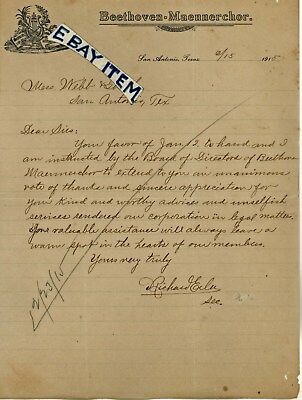 Beethoven-Maennerchor.
EBAY ITEM
San Antonio, Texas 2/15 1915
Mess Webb &
San Antonio, Tex
Dear Sirs:
Your favor of Jan 2. to hand and I
am instructed by the Board of Directors of Beethoven
Maennerchor to extend to You an unanimous
vote of thanks and sincere appreciation for
your kind and worthy advises and unselfish
services rendered our coperation in legal matters.
Your valuable assistance will always leave a
warm spot in the hearts of our members.
Yours very truly
Richard
Sec.
12/23/15